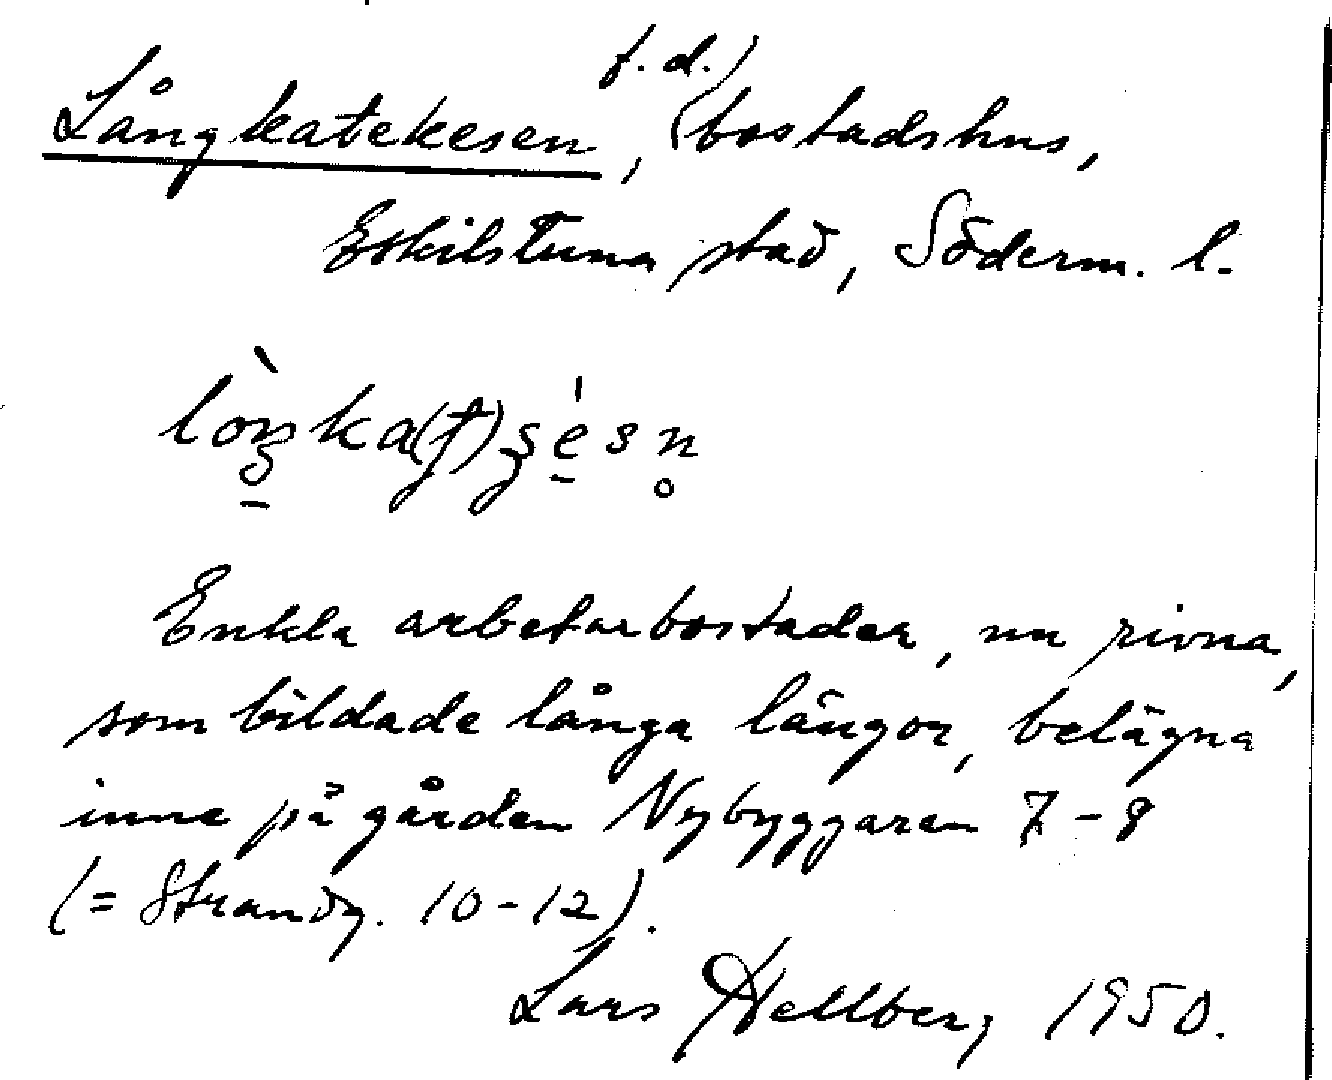 Långkatekesen, (f. d.) bostadshus,
Eskilstuna stad, Söderm. l.
Enkla arbetarbostäder, nu rivna,
som bildade långa längor, belägna
inne på gården Nybyggaren 7-8
(= Strandg. 10-12).
Lars Hellberg 1950.